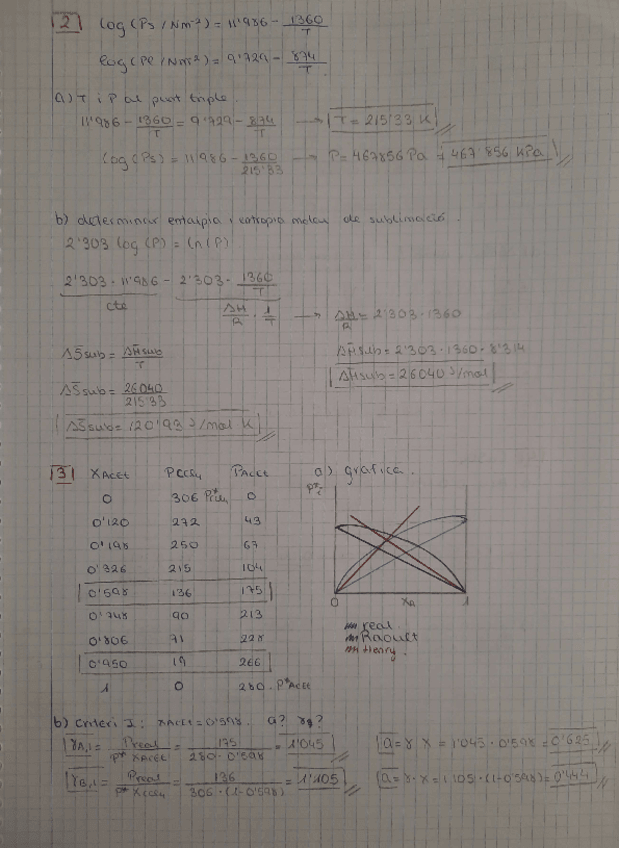 2 log (Ps / Nm⁻²) = 11'986 - 1360/T
log (Pl / Nm⁻²) = 9'729 - 874/T
a) T i P al punt triple.
11'986 - 1360/T = 9'729 - 874/T → T = 215'33 K
log (Ps) = 11'986 - 1360/215'33 → P = 467856 Pa = 467'856 KPa
b) determinar entalpia i entropia molar de sublimació.
2'303 log (P) = Ln (P)
2'303 · 11'986 - 2'303 · 1360/T
cte ΔH/R · 1/T → ΔH/R = 2'303 · 1360
ΔS̄sub = ΔH̄sub/T ΔH̄sub = 2'303 · 1360 · 8'314
ΔS̄sub = 26040/215'33 ΔH̄sub = 26040 J/mol
ΔS̄sub = 120'93 J/mol K
3 XAcet PCCl4 PAcet a) gràfica.
0 306 P*CCl4 0 P*i
0'120 272 43
0'198 250 67
0'326 215 104
0'598 136 175
0'748 90 213 0 XA 1
0'806 71 228 real
0'950 19 266 Raoult
1 0 280 · P*Acet Henry.
b) Criteri I: XAcet = 0'598. a? γ?
γA,I = Preal/P* XAcet = 175/280 · 0'598 = 1'045 a = γ x = 1'045 · 0'598 = 0'625
γB,I = Preal/P* XCCl4 = 136/306 · (1-0'598) = 1'105 a = γ · x = 1'105 · (1-0'598) = 0'444